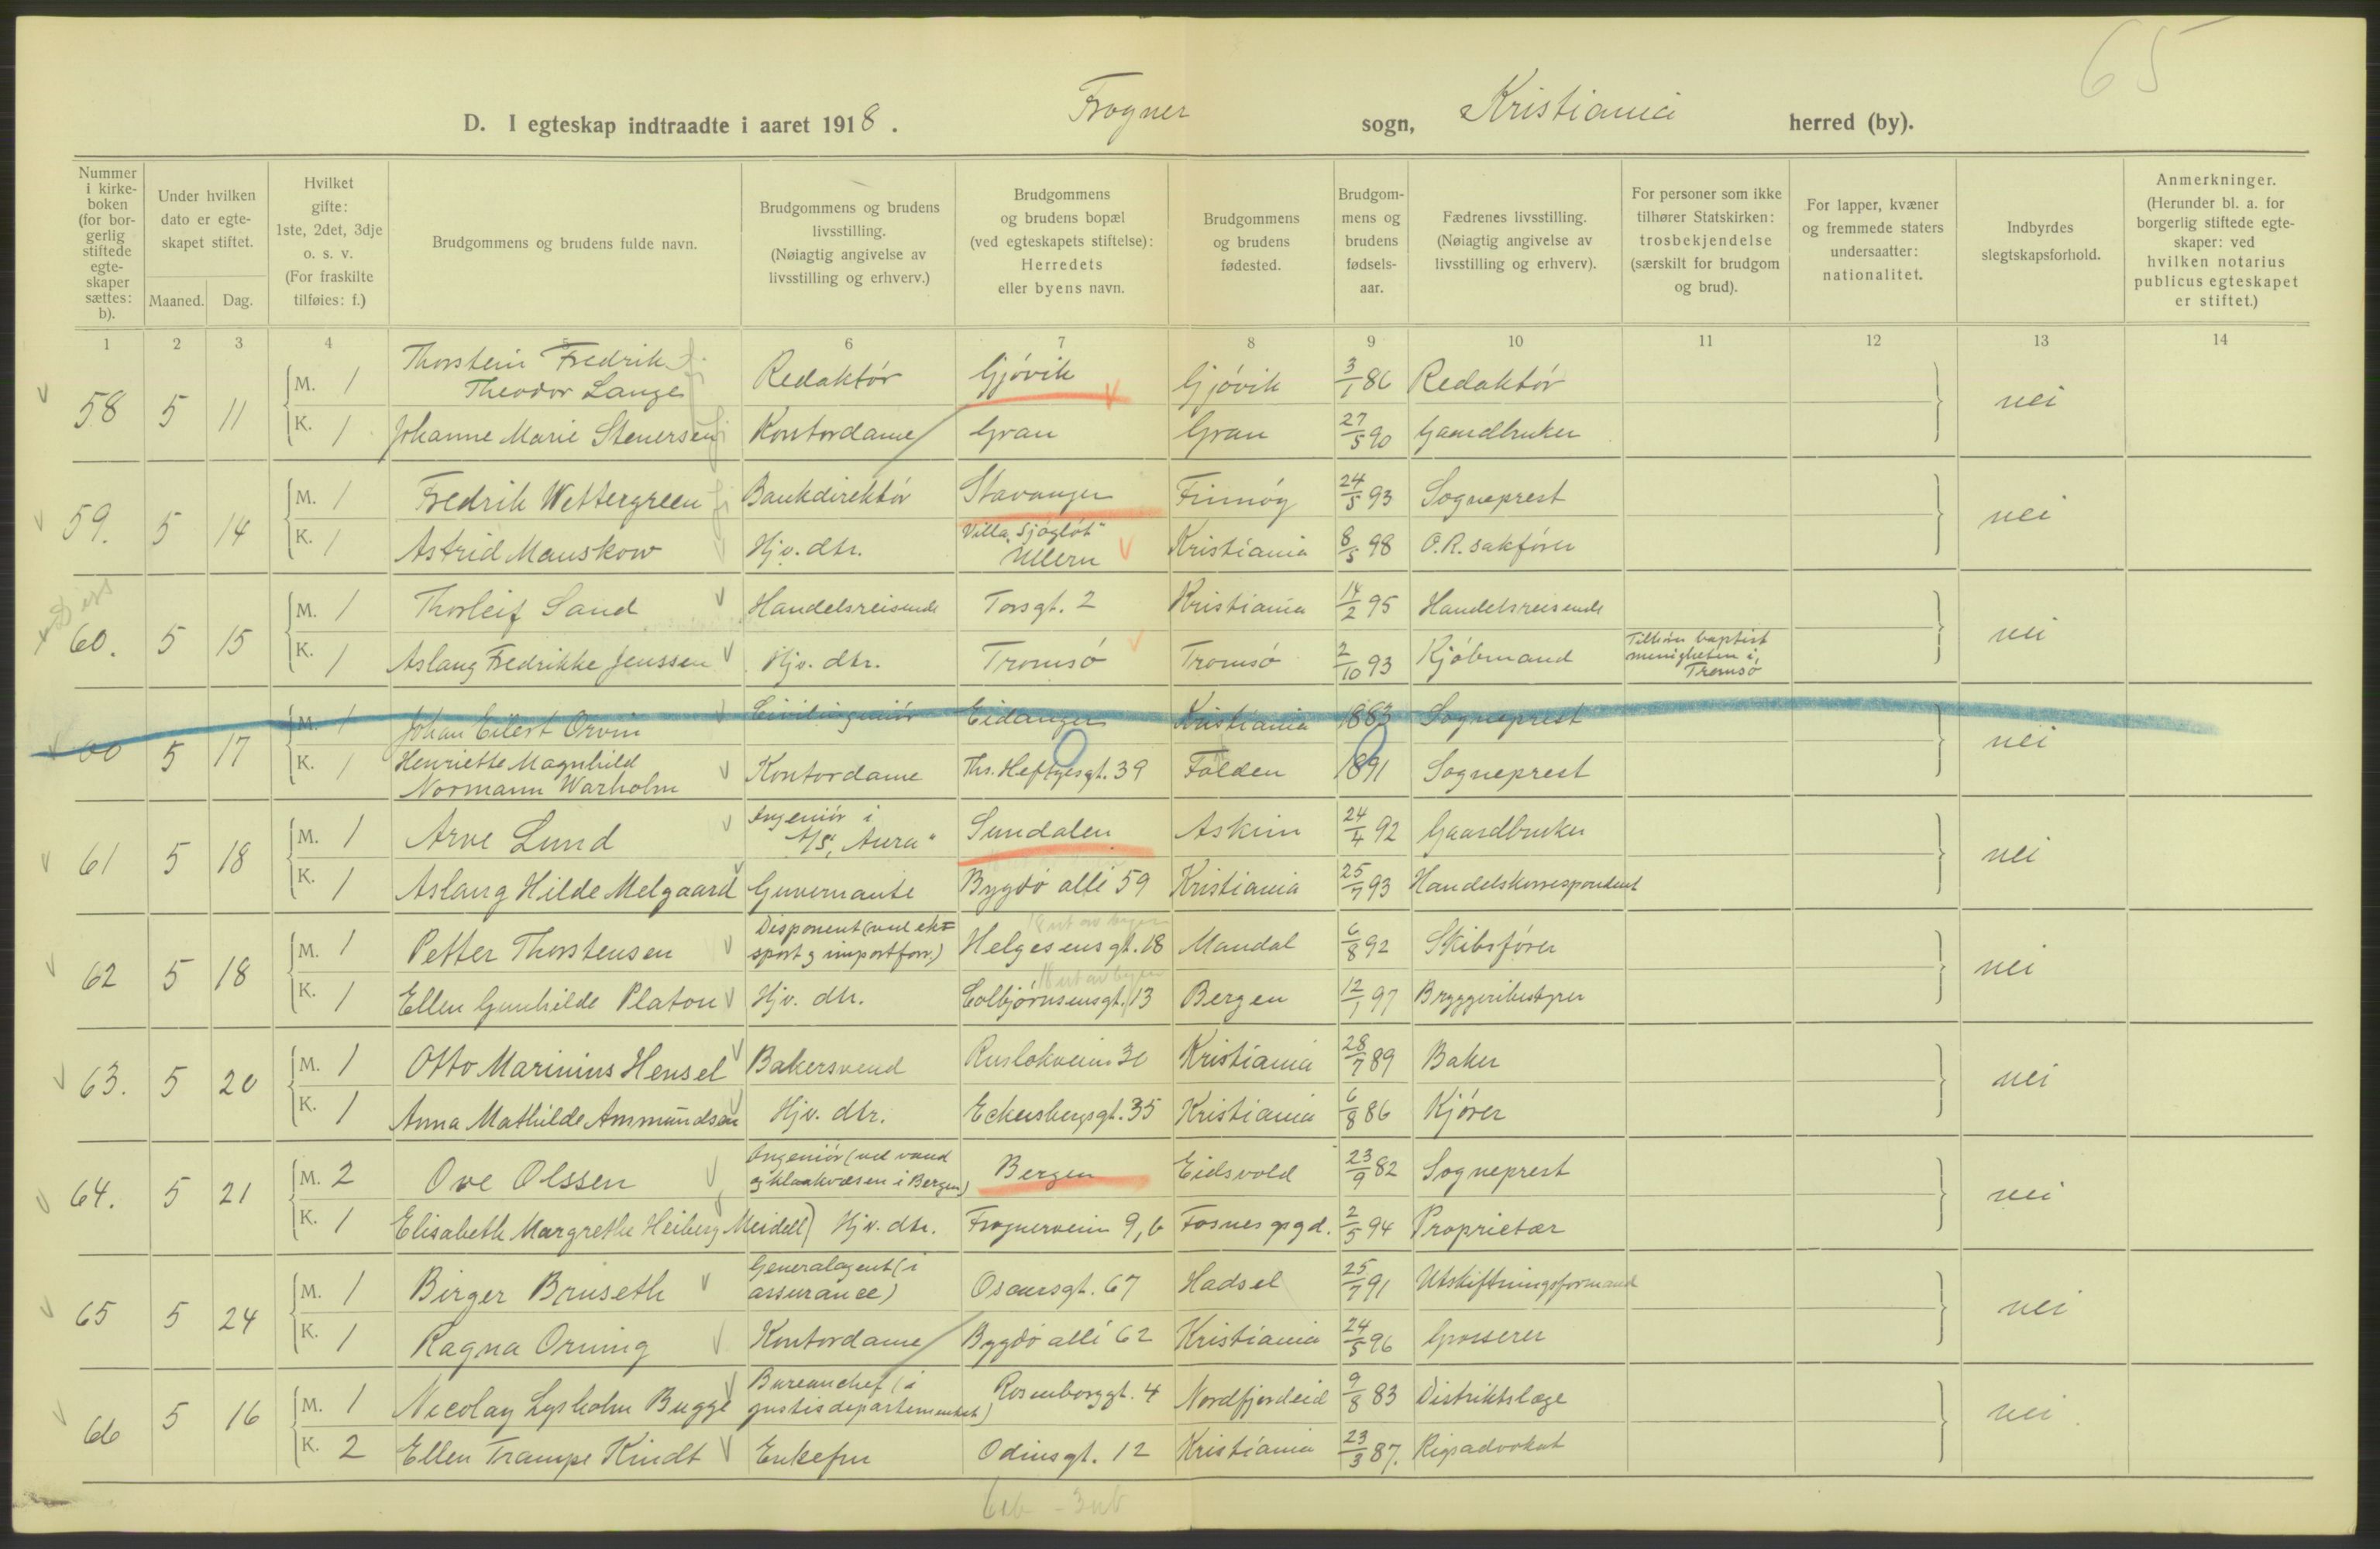 65
D. I egteskap indtraadte i aaret 1918. Frogner sogn, Kristiania herred (by).
Nummer i kirkeboken (for borgerlig stiftede egteskaper sættes: b).
Under hvilken dato er egteskapet stiftet.
Maaned. Dag.
Hvilket gifte: 1ste, 2det, 3dje o. s. v. (For fraskilte tilføies: f.)
Brudgommens og brudens fulde navn.
Brudgommens og brudens livsstilling. (Nøiagtig angivelse av livsstilling og erhverv.)
Brudgommens og brudens bopæl (ved egteskapets stiftelse): Herredets eller byens navn.
Brudgommens og brudens fødested.
Brudgommens og brudens fødselsaar.
Fædrenes livsstilling. (Nøiagtig angivelse av livsstilling og erhverv).
For personer som ikke tilhører Statskirken: trosbekjendelse (særskilt for brudgom og brud).
For lapper, kvæner og fremmede staters undersaatter: nationalitet.
Indbyrdes slegtskapsforhold.
Anmerkninger. (Herunder bl. a. for borgerlig stiftede egteskaper: ved hvilken notarius publicus egteskapet er stiftet.)
1 2 3 4 5 6 7 8 9 10 11 12 13 14
58 5 11 M. 1 Thorstein Fredrik Theodor Lange Redaktör Gjövik Gjövik 3/1 86 Redaktör nei
K. 1 Johanne Marie Stenersen Kontordame Gran Gran 27/5 90 Gaardbruker
59. 5 14 M. 1 Fredrik Wettergreen Bankdirektör Stavanger Finnöy 24/5 93 Sogneprest nei
K. 1 Astrid Manskow Hjv. dtr. Villa "Sjögløt" Ullern Kristiania 8/5 98 O.R. sakförer
60. 5 15 M. 1 Thorleif Sand Handelsreisende Torsgt. 2 Kristiania 14/2 95 Handelsreisende nei
K. 1 Aslaug Fredrikke Jenssen Hjv. dtr. Tromsö Tromsö 2/10 93 Kjöbmand Tilhörer baptist menigheten i Tromsö
00 5 17 M. 1 Johan Eilert Orvin Civilingeniör Eidanger Kristiania 1883 Sogneprest nei
K. 1 Henriette Magnhild Normann Warholm Kontordame Ths. Heftyesgt. 39 Folden 1891 Sogneprest
61 5 18 M. 1 Arve Lund Ingeniör i A/S "Aura" Sundalen Askim 24/4 92 Gaardbruker nei
K. 1 Aslaug Hilde Melgaard Guvernante Bygdö allé 59 Kristiania 25/7 93 Handelskorrespondent
62 5 18 M. 1 Petter Thorstensen Disponent (ved eksport og importforr.) Helgesensgt. 18 Mandal 6/8 92 Skibsförer nei
K. 1 Ellen Gunhilde Platou Hjv. dtr. Colbjörnsensgt. 13 Bergen 12/1 97 Bryggeribestyrer
63. 5 20 M. 1 Otto Marinius Hensel Bakersvend Ruslökveien 30 Kristiania 28/7 89 Baker nei
K. 1 Anna Mathilde Ammundsen Hjv. dtr. Eckersbergsgt. 35 Kristiania 6/8 86 Kjörer
64. 5 21 M. 2 Ove Olssen Ingeniör (ved vand og kloakvæsen i Bergen) Bergen Eidsvold 23/9 82 Sogneprest nei
K. 1 Elisabeth Margrethe Heiberg Meidell Hjv. dtr. Frognerveien 9,b Fosnes prgd. 2/5 94 Proprietær
65 5 24 M. 1 Birger Bruseth Generalagent (i assurance) Oscarsgt. 67 Hadsel 25/7 91 Utskiftningsformand nei
K. 1 Ragna Orning Kontordame Bygdö allé 62 Kristiania 24/5 96 Grosserer
66 5 16 M. 1 Nicolay Lysholm Bugge Bureauchef (i justisdepartementet) Rosenborggt. 4 Nordfjordeid 9/8 83 Distriktslæge nei
K. 2 Ellen Trampe Kindt Enkefru Odinsgt. 12 Kristiania 23/3 87. Rigsadvokat